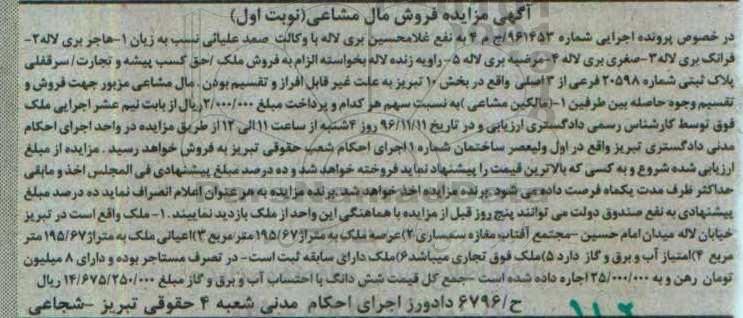 آگهی مزایده فروش مال مشاعی(نوبت اول)
در خصوص پرونده اجرایی شماره ۹۶۱۴۵۳/ج م ۴ به نفع غلامحسین بری لاله با وکالت صمد علیائی نسب به زیان ۱-هاجر بری لاله۲-
فرانک بری لاله۳-صغری بری لاله ۴-مرضیه بری لاله ۵-راویه زنده لاله بخواسته الزام به فروش ملک /حق کسب پیشه و تجارت/ سرقفلی
پلاک ثبتی شماره ۲۰۵۹۸ فرعی از ۳ اصلی واقع در بخش ۱۰ تبریز به علت غیر قابل افراز و تقسیم بودن . مال مشاعی مزبور جهت فروش و
تقسیم وجوه حاصله بین طرفین ۱-(مالکین مشاعی )به نسبت سهم هر کدام و پرداخت مبلغ ۲/۰۰۰/۰۰۰ریال از بابت نیم عشر اجرایی ملک
فوق توسط کارشناس رسمی دادگستری ارزیابی و در تاریخ ۹۶/۱۱/۱۱ روز ۴شنبه از ساعت ۱۱الی ۱۲ از طریق مزایده در واحد اجرای احکام
مدنی دادگستری تبریز واقع در اول ولیعصر ساختمان شماره ۱ اجرای احکام شعب حقوقی تبریز به فروش خواهد رسید . مزایده از مبلغ
ارزیابی شده شروع و به کسی که بالاترین قیمت را پیشنهاد نماید فروخته خواهد شد و ده درصد مبلغ پیشنهادی فی المجلس اخذ و مابقی
حداکثر ظرف مدت یکماه فرصت داده می شود. برنده مزایده اخذ خواهد شد .برنده مزایده به هر عنوان اعلام انصراف نماید ده درصد مبلغ
پیشنهادی به نفع صندوق دولت می توانند پنج روز قبل از مزایده با هماهنگی این واحد از ملک بازدید نمایند. ۱- ملک واقع است در تبریز
خیابان لاله میدان امام حسین -مجتمع آفتاب مغازه سمساری ۲)عرصه ملک به متراژ ۱۹۵/۶۷متر مربع ۳)اعیانی ملک به متراژ ۱۹۵/۶۷ متر
مربع ۴)امتیاز آب و برق و گاز دارد ۵)ملک فوق تجاری میباشد ۶)ملک دارای سابقه ثبت است- در تصرف مستاجر بوده و دارای ۸ میلیون
تومان رهن و به ۳۵/۰۰۰/۰۰۰ اجاره داده شده است -جمع کل قیمت شش دانگ با احتساب آب و برق و گاز مبلغ ۱۴/۶۷۵/۲۵۰/۰۰۰ ریال
ح/۶۷۹۶ دادورز اجرای احکام مدنی شعبه ۴ حقوقی تبریز -شجاعی